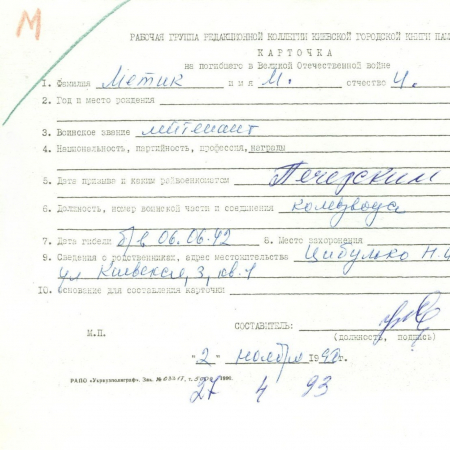 М
РАБОЧАЯ ГРУППА РЕДАКЦИОННОЙ КОЛЛЕГИИ КИЕВСКОЙ ГОРОДСКОЙ КНИГИ ПАМ
КАРТОЧКА
на погибшего в Великой Отечественной войне
1. Фамилия Метик имя М. отчество И.
2. Год и место рождения
3. Воинское звание лейтенант
4. Национальность, партийность, профессия, награды
5. Дата призыва и каким райвоенкоматом Печерским
6. Должность, номер воинской части и соединения ком. взвода
7. Дата гибели б/в 06.06.42 8. Место захоронения
9. Сведения о родственниках, адрес местожительства Цибулько Н.
ул Киевская, 3, кв. 1
10. Основание для составления карточки
СОСТАВИТЕЛЬ:
(должность, подпись)
М.П.
"2" ноября 1992г.
РАПО «Укрвузполиграф». Зак. №
27 4 93